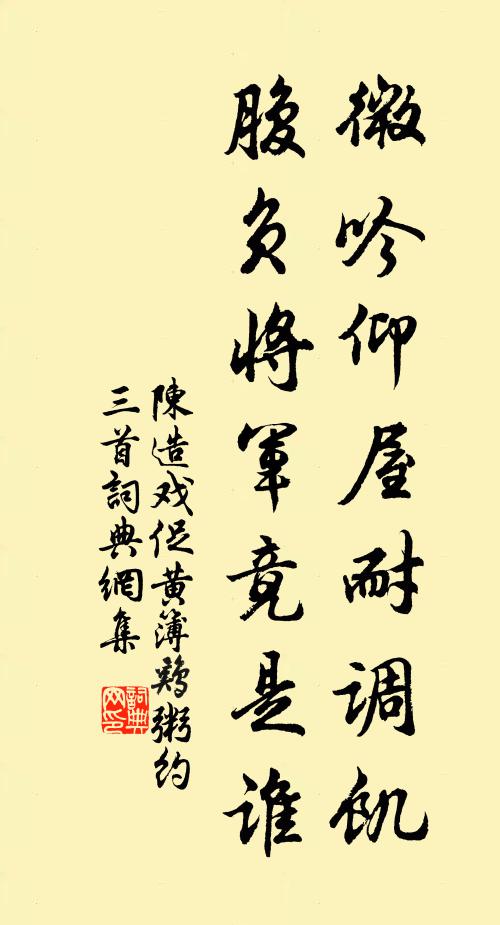 微吟仰屋耐调飢
腹负将军竟是谁
陳造戏促黄簿鶏粥约
三首詞典網集
詞典网印